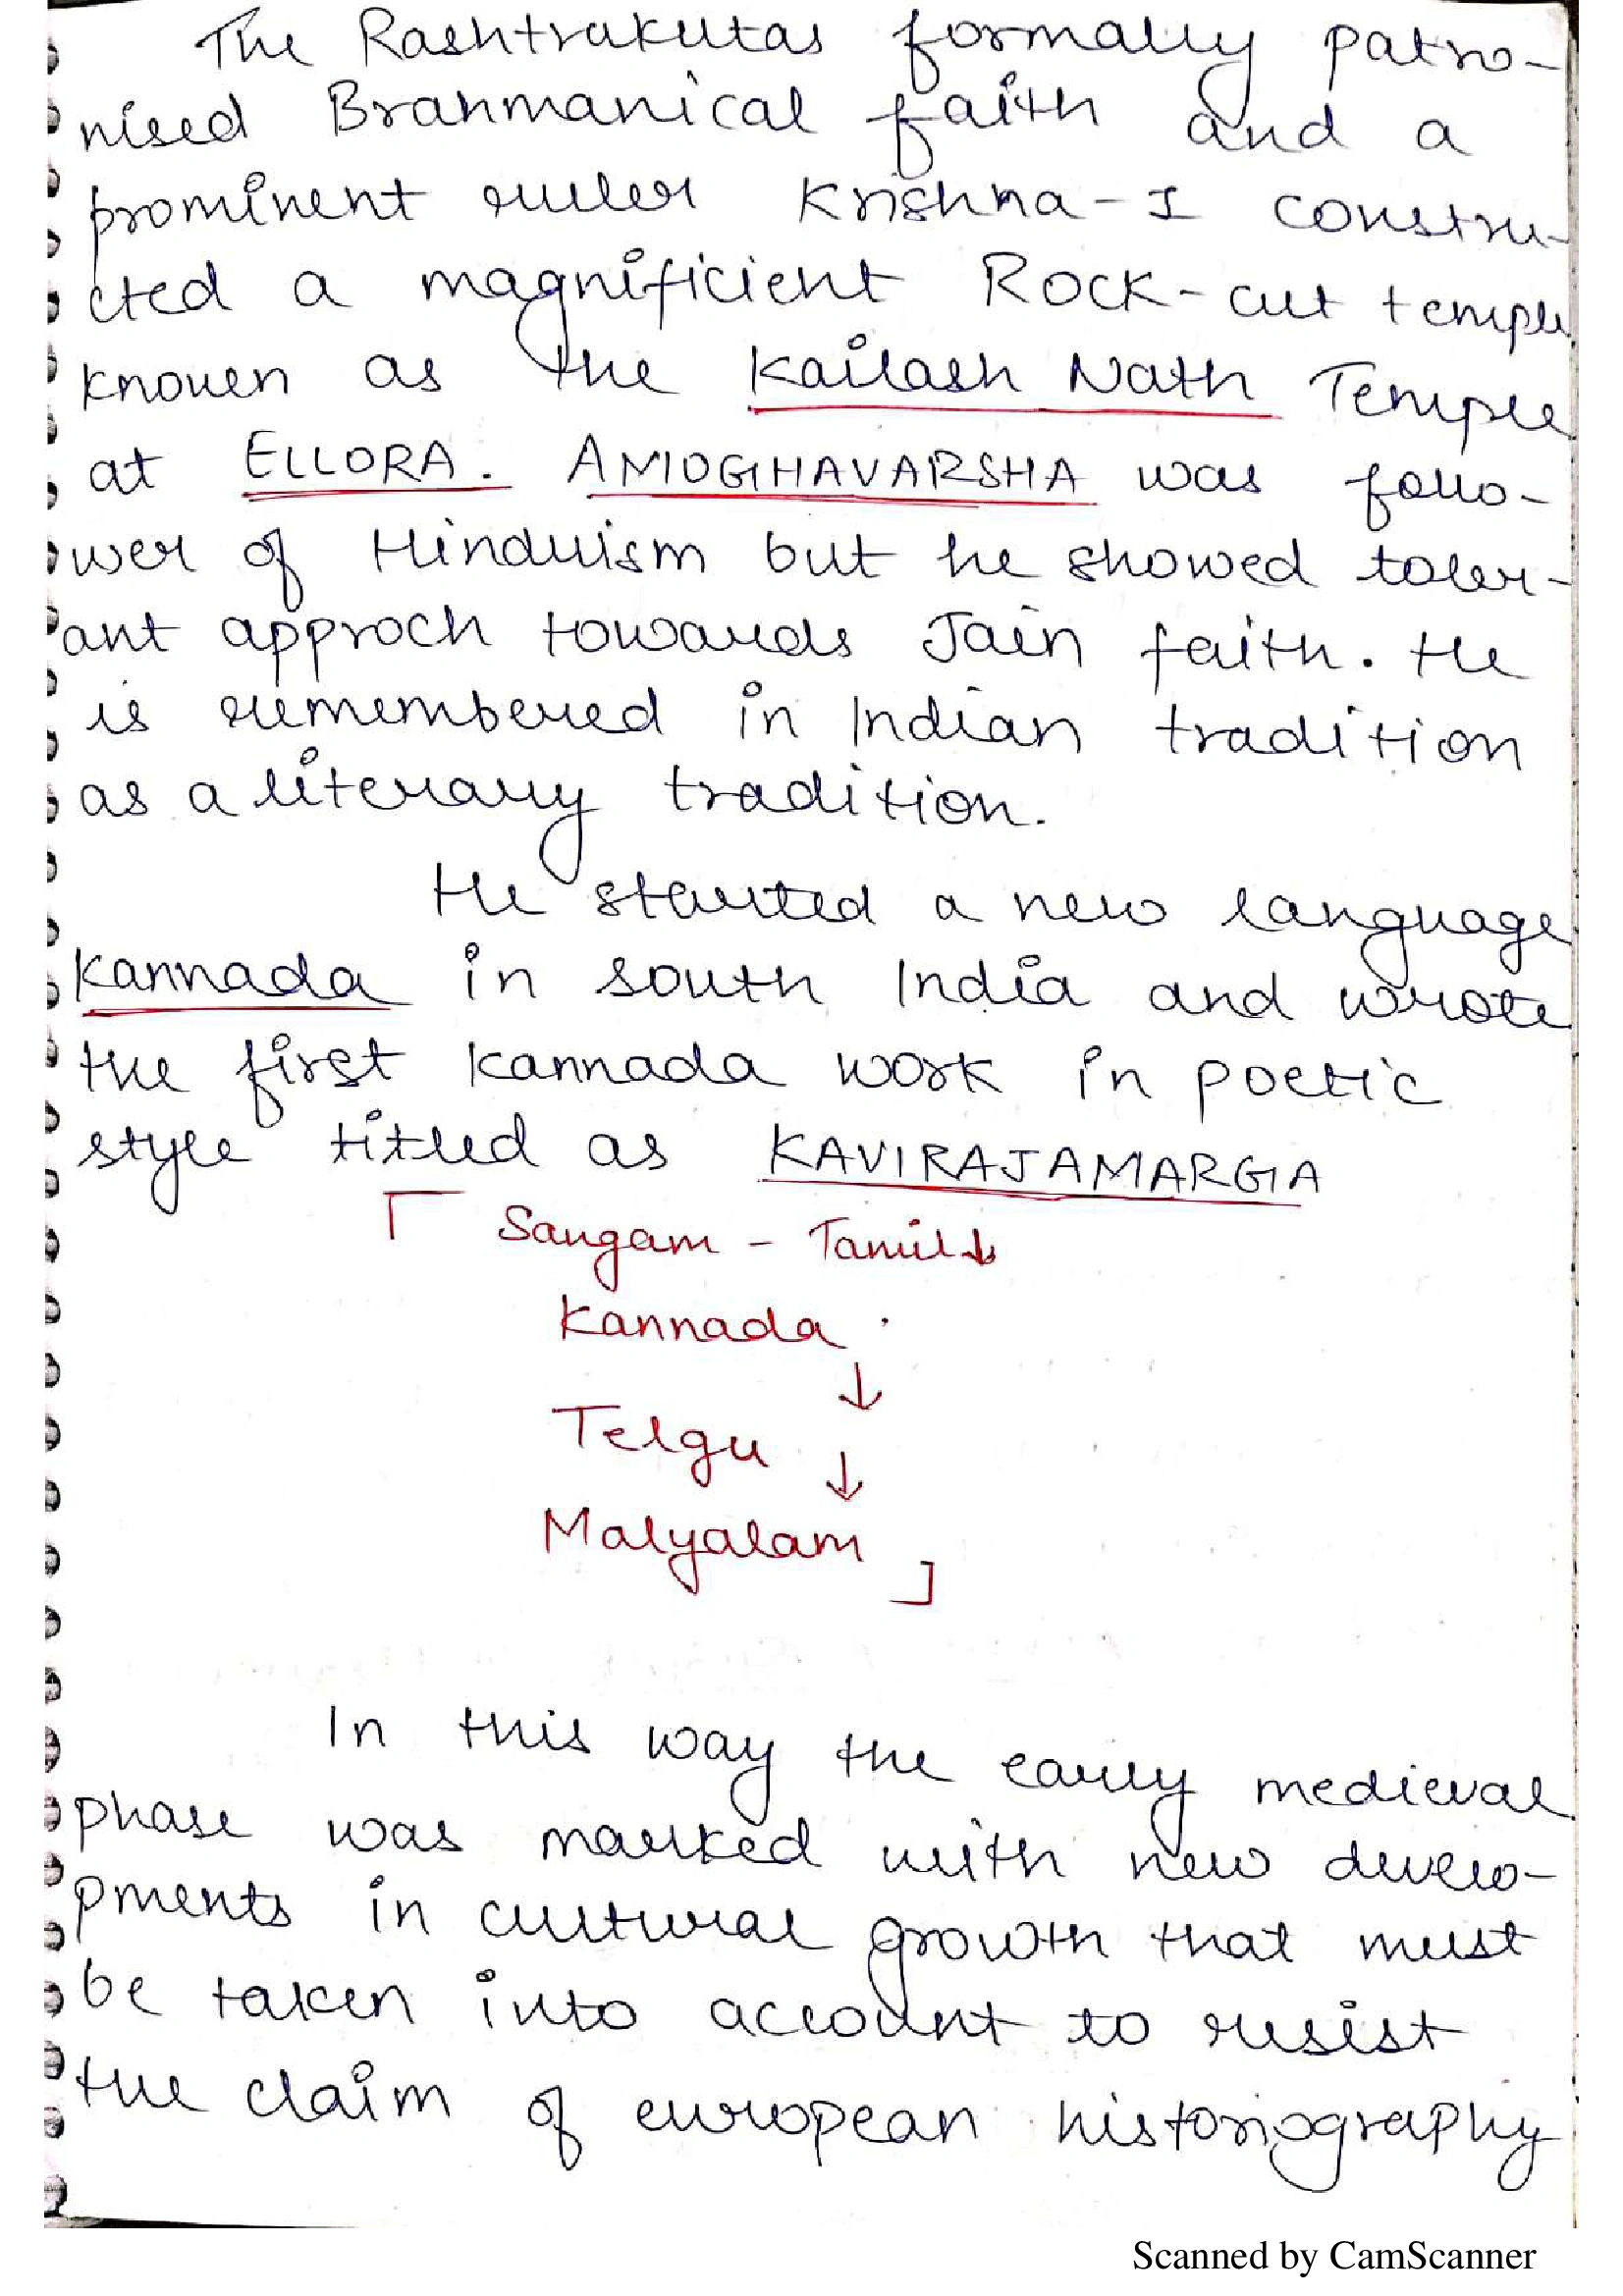 The Rashtrakutas formally patro-
nised Brahmanical faith and a
prominent ruler Krishna-I constru-
cted a magnificient Rock-cut temple
known as the Kailash Nath Temple
at ELLORA. AMOGHAVARSHA was follo-
wer of Hinduism but he showed toler-
ant approch towards Jain faith. He
is remembered in Indian tradition
as a literary tradition.
He started a new language
Kannada in south India and wrote
the first Kannada work in poetic
style titled as KAVIRAJAMARGA
[ Sangam - Tamil ↓
Kannada
↓
Telgu
↓
Malyalam ]
In this way the early medieval
phase was marked with new develo-
pments in cultural growth that must
be taken into account to resist
the claim of european historiography
Scanned by CamScanner